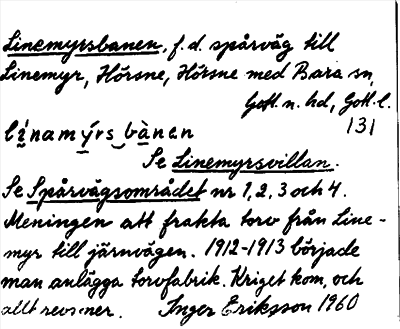 Linemyrsbanen, f.d. spårväg till
Linemyr, Hörsne, Hörsne med Bara sn,
Gotl. n. hd, Gotl. l.
131
Se Linemyrsvillan.
Se Spårvägsområdet nr 1, 2, 3 och 4.
Meningen att frakta torv från Line-
myr till järnvägen. 1912-1913 började
man anlägga torvfabrik. Kriget kom, och
allt Inger Eriksson 1960